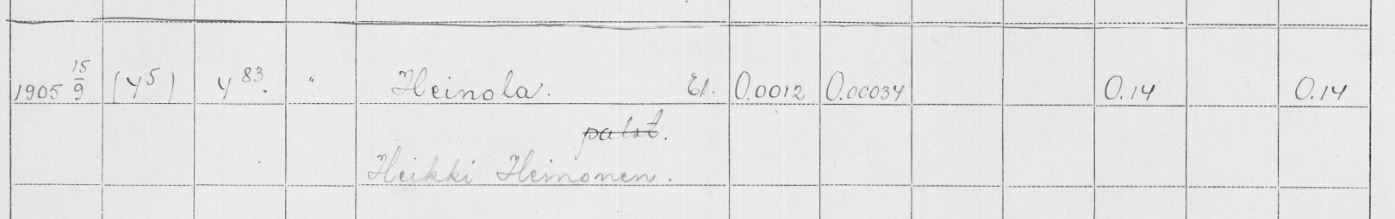 1905 15/9 (4⁵) 4⁸³. " Heinola. El. 0.0012 0.00034 0.14 0.14
palst.
Heikki Heinonen.